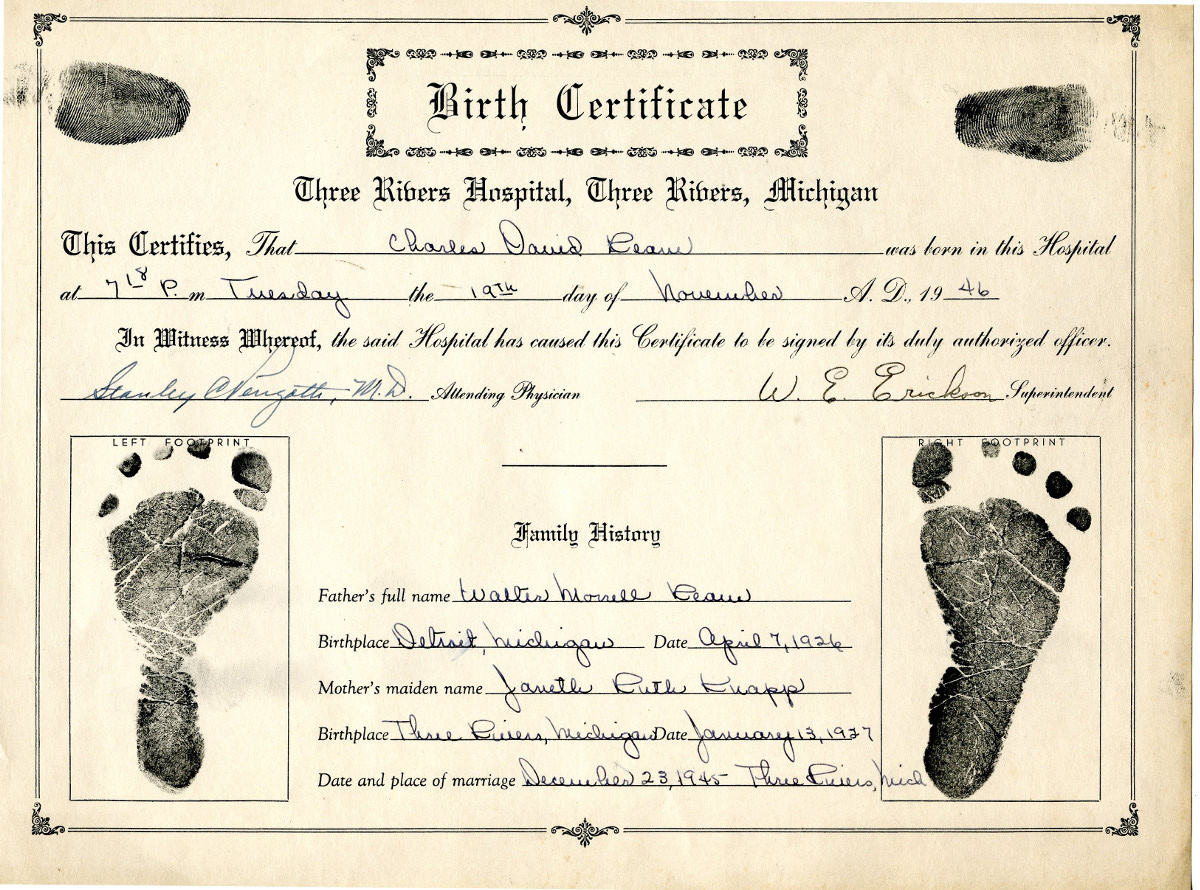 Birth Certificate
Three Rivers Hospital, Three Rivers, Michigan
This Certifies, That Charles David was born in this Hospital
at 7 18 P. m Tuesday the 19th day of November A. D., 19 46
In Witness Whereof, the said Hospital has caused this Certificate to be signed by its duly authorized officer.
Stanley C Penzotti, M.D. Attending Physician W. E. Erickson Superintendent
LEFT FOOTPRINT RIGHT FOOTPRINT
Family History
Father's full name Walter Morrell
Birthplace Detroit, Michigan Date April 7, 1926
Mother's maiden name Janeth Ruth Knapp
Birthplace Three Rivers, Michigan Date January 13, 1927
Date and place of marriage December 23, 1945 - Three Rivers, Mich